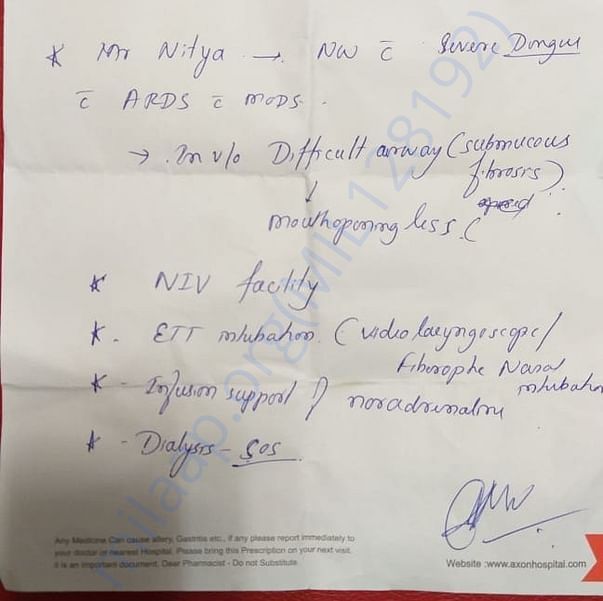 * Mr Nitya → NW c̄ Severe Dongue
c̄ ARDS c̄ MODS.
→ . In v/o Difficult airway (submucous
fibrosis)
↓
mouthopening less. (
* NIV facility
*. ETT intubation. (video laryngoscope/
Fiberophe Nasal
intubation
* - Infusion support of noradrenaline
* - Dialysis - SOS
Any Medicine Can cause allery, Gastritis etc., if any please report immediately to
your doctor or nearest Hospital. Please bring this Prescription on your next visit.
it is an important document. Dear Pharmacist - Do not Substitute.
Website :www.axonhospital.com
milaap.org(MIL128192)